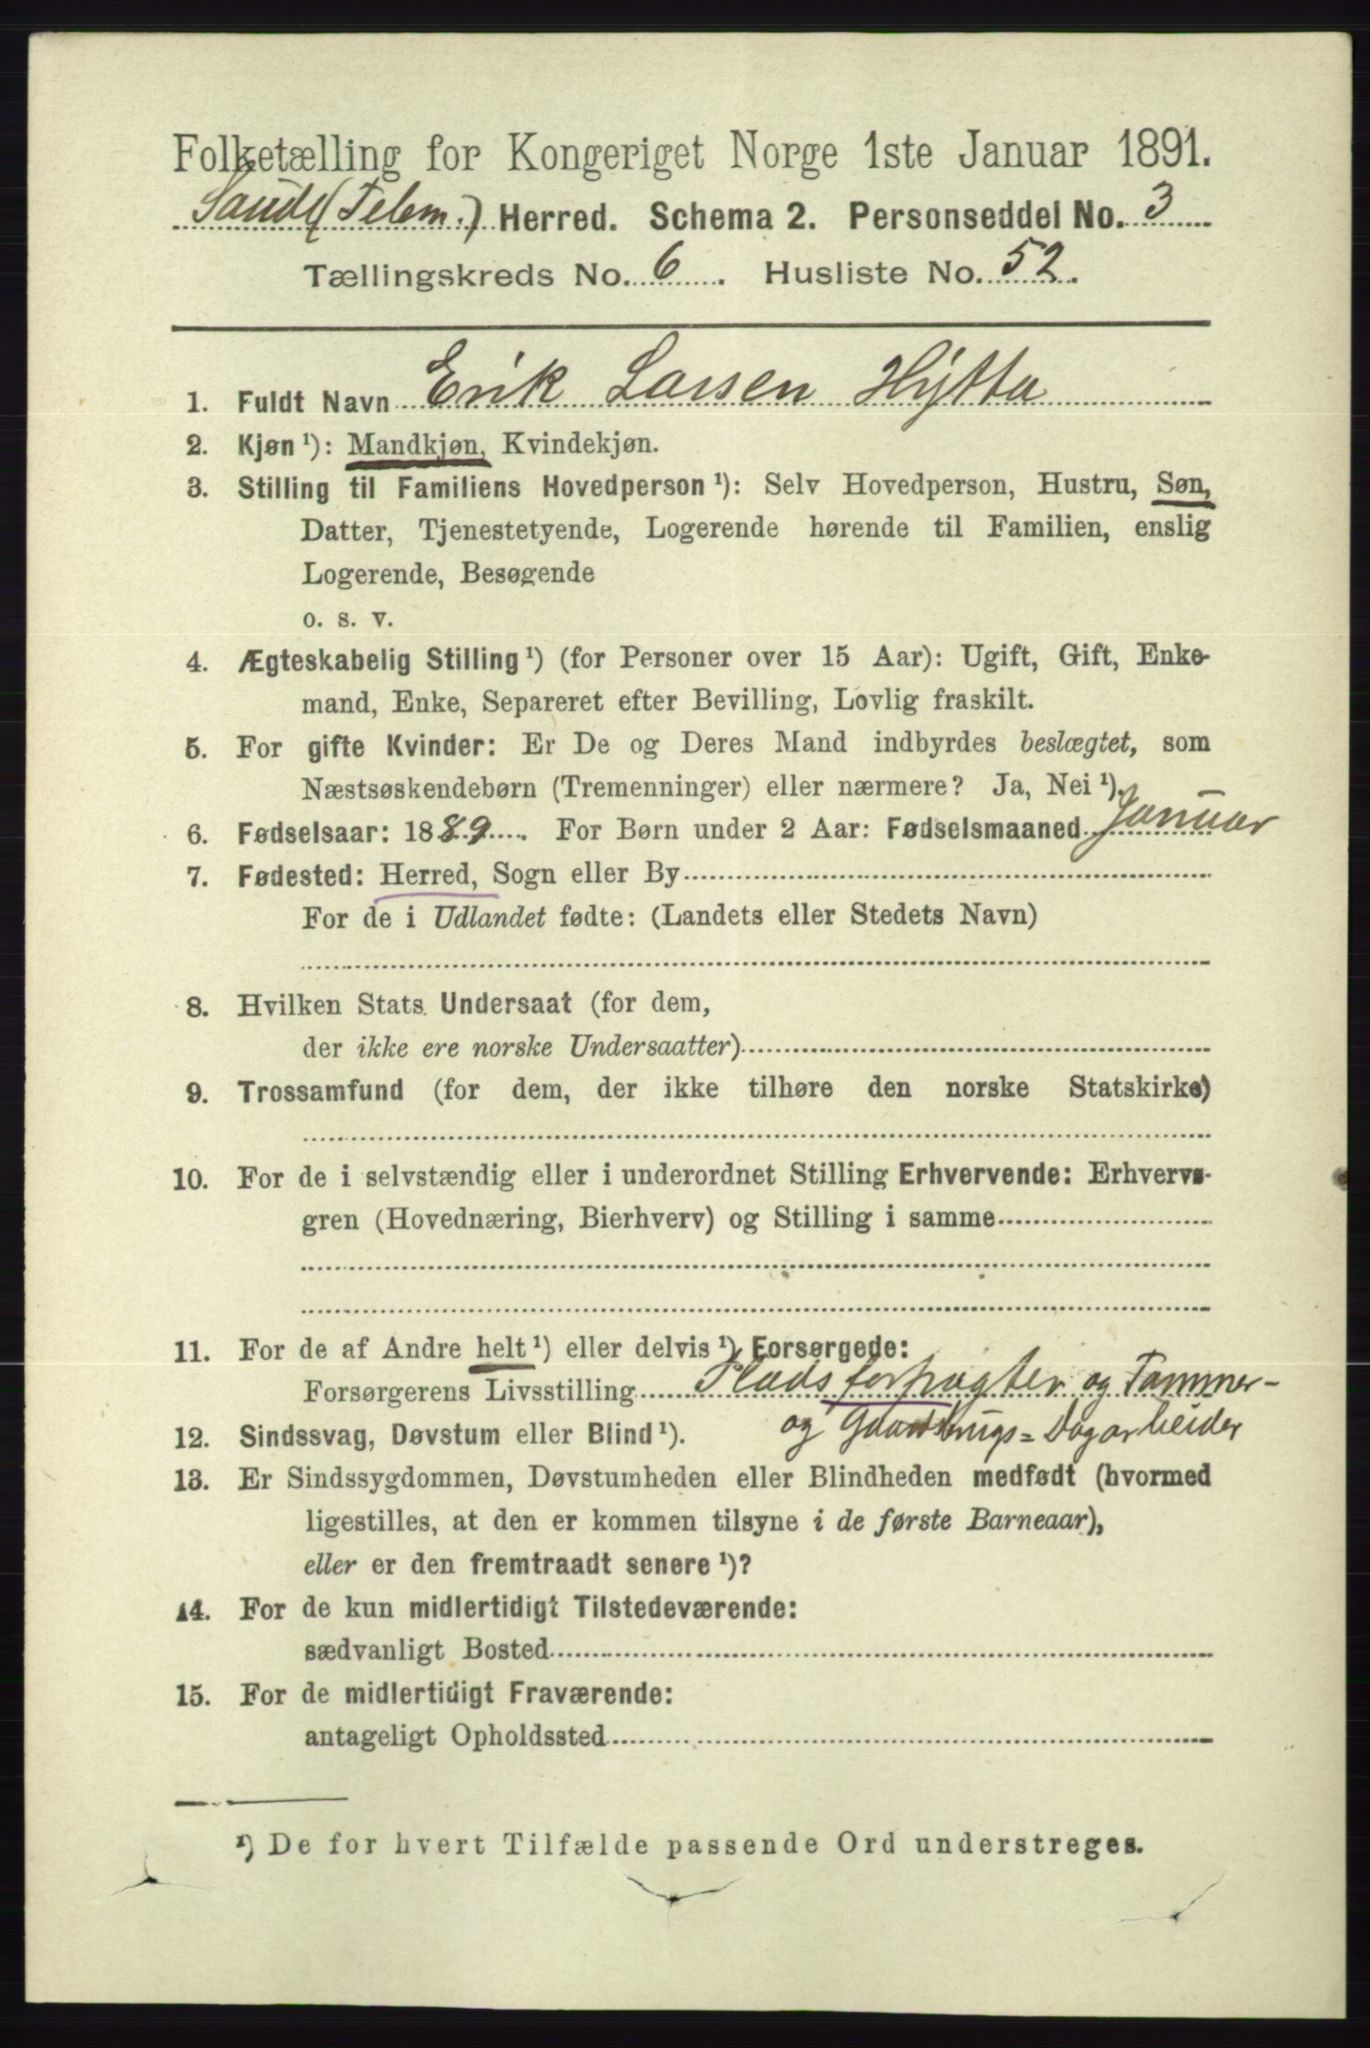 Folketælling for Kongeriget Norge 1ste Januar 1891.
Saude (Telem.) Herred. Schema 2. Personseddel No. 3
Tællingskreds No. 6. Husliste No. 52.
1. Fuldt Navn Erik Larsen Hytta
2. Kjøn¹): Mandkjøn, Kvindekjøn.
3. Stilling til Familiens Hovedperson¹): Selv Hovedperson, Hustru, Søn,
Datter, Tjenestetyende, Logerende hørende til Familien, enslig
Logerende, Besøgende
o. s. v.
4. Ægteskabelig Stilling¹) (for Personer over 15 Aar): Ugift, Gift, Enke-
mand, Enke, Separeret efter Bevilling, Lovlig fraskilt.
5. For gifte Kvinder: Er De og Deres Mand indbyrdes beslægtet, som
Næstsøskendebørn (Tremenninger) eller nærmere? Ja, Nei¹).
6. Fødselsaar: 1889. For Børn under 2 Aar: Fødselsmaaned Januar
7. Fødested: Herred, Sogn eller By
For de i Udlandet fødte: (Landets eller Stedets Navn)
8. Hvilken Stats Undersaat (for dem,
der ikke ere norske Undersaatter)
9. Trossamfund (for dem, der ikke tilhøre den norske Statskirke)
10. For de i selvstændig eller i underordnet Stilling Erhvervende: Erhvervs-
gren (Hovednæring, Bierhverv) og Stilling i samme
11. For de af Andre helt¹) eller delvis¹) Forsørgede:
Forsørgerens Livsstilling Pladsforpagter og Tømmer-
og Gaardsbrugs=Dagarbeider
12. Sindssvag, Døvstum eller Blind¹).
13. Er Sindssygdommen, Døvstumheden eller Blindheden medfødt (hvormed
ligestilles, at den er kommen tilsyne i de første Barneaar),
eller er den fremtraadt senere¹)?
14. For de kun midlertidigt Tilstedeværende:
sædvanligt Bosted
15. For de midlertidigt Fraværende:
antageligt Opholdssted
¹) De for hvert Tilfælde passende Ord understreges.